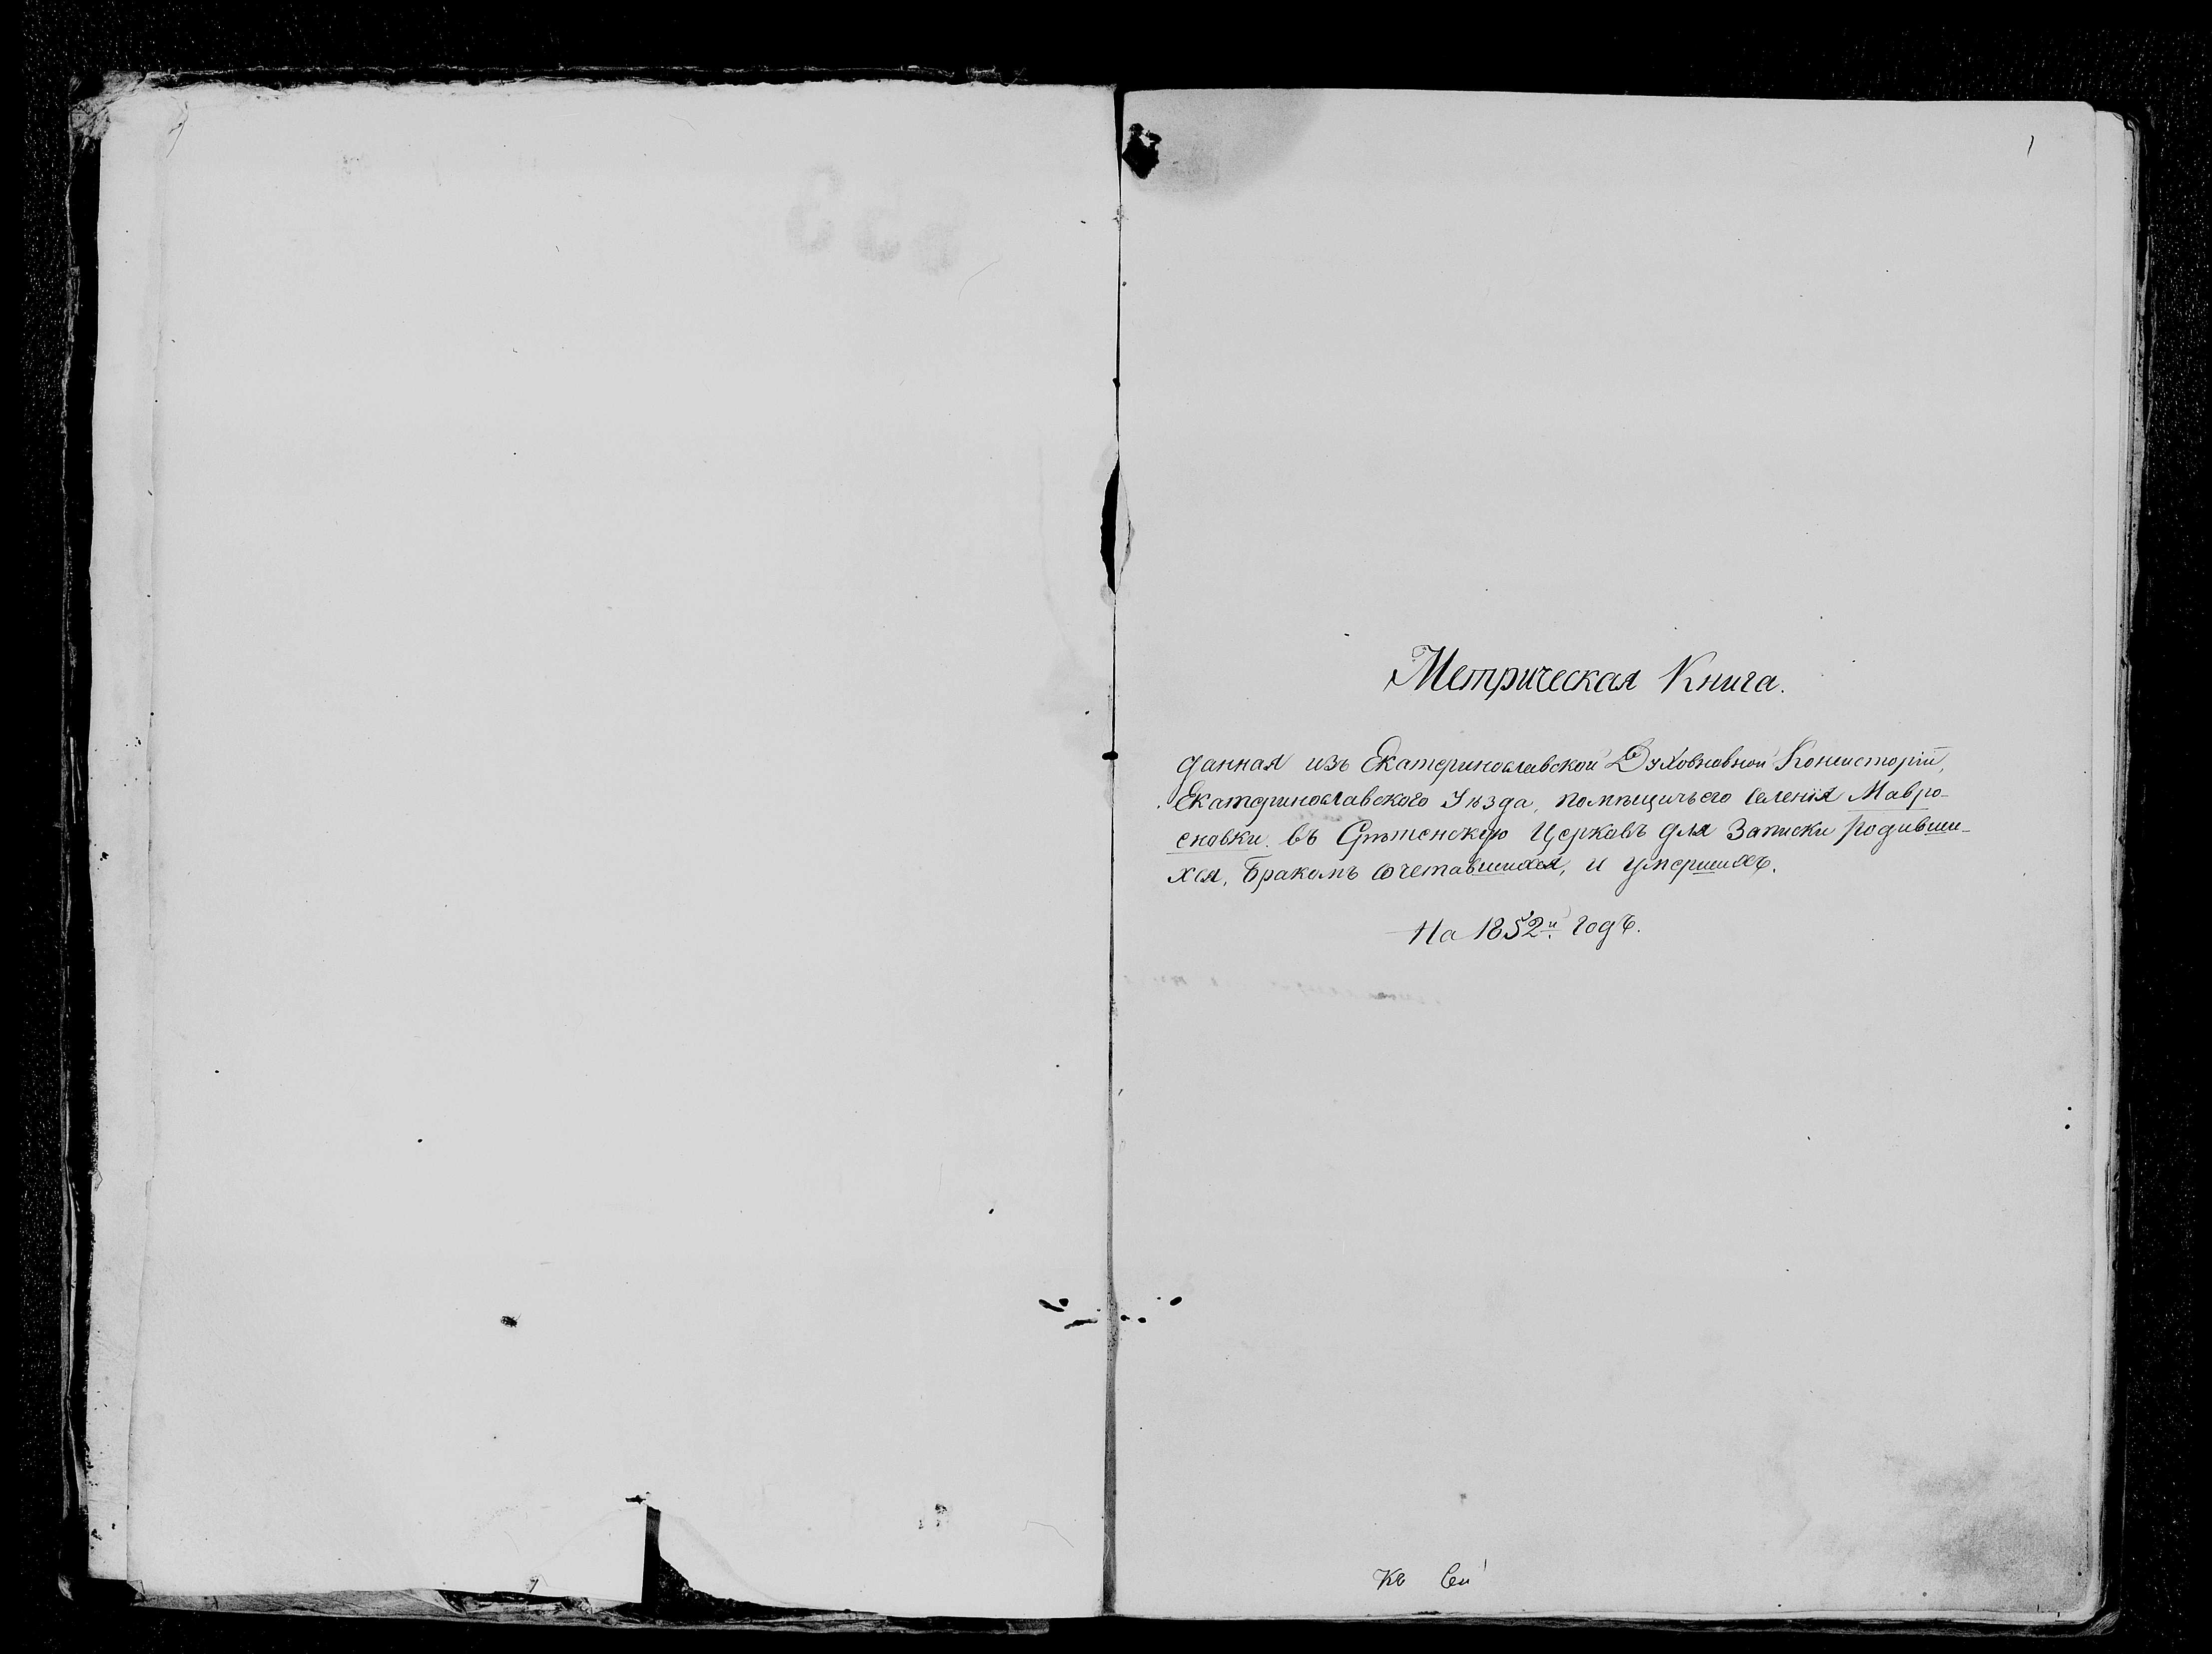 1
Метрическая Книга.
данная изъ Екатеринославской Духовновной Консисторіи,
Екатеринославского Уѣзда, помѣщичьего селенія Мавро-
еновки. въ Срѣтенскую Церковь для Записки родивши-
хся, бракомъ сочетавшихся, и умершихъ.
На 1852й годъ.
Къ сей